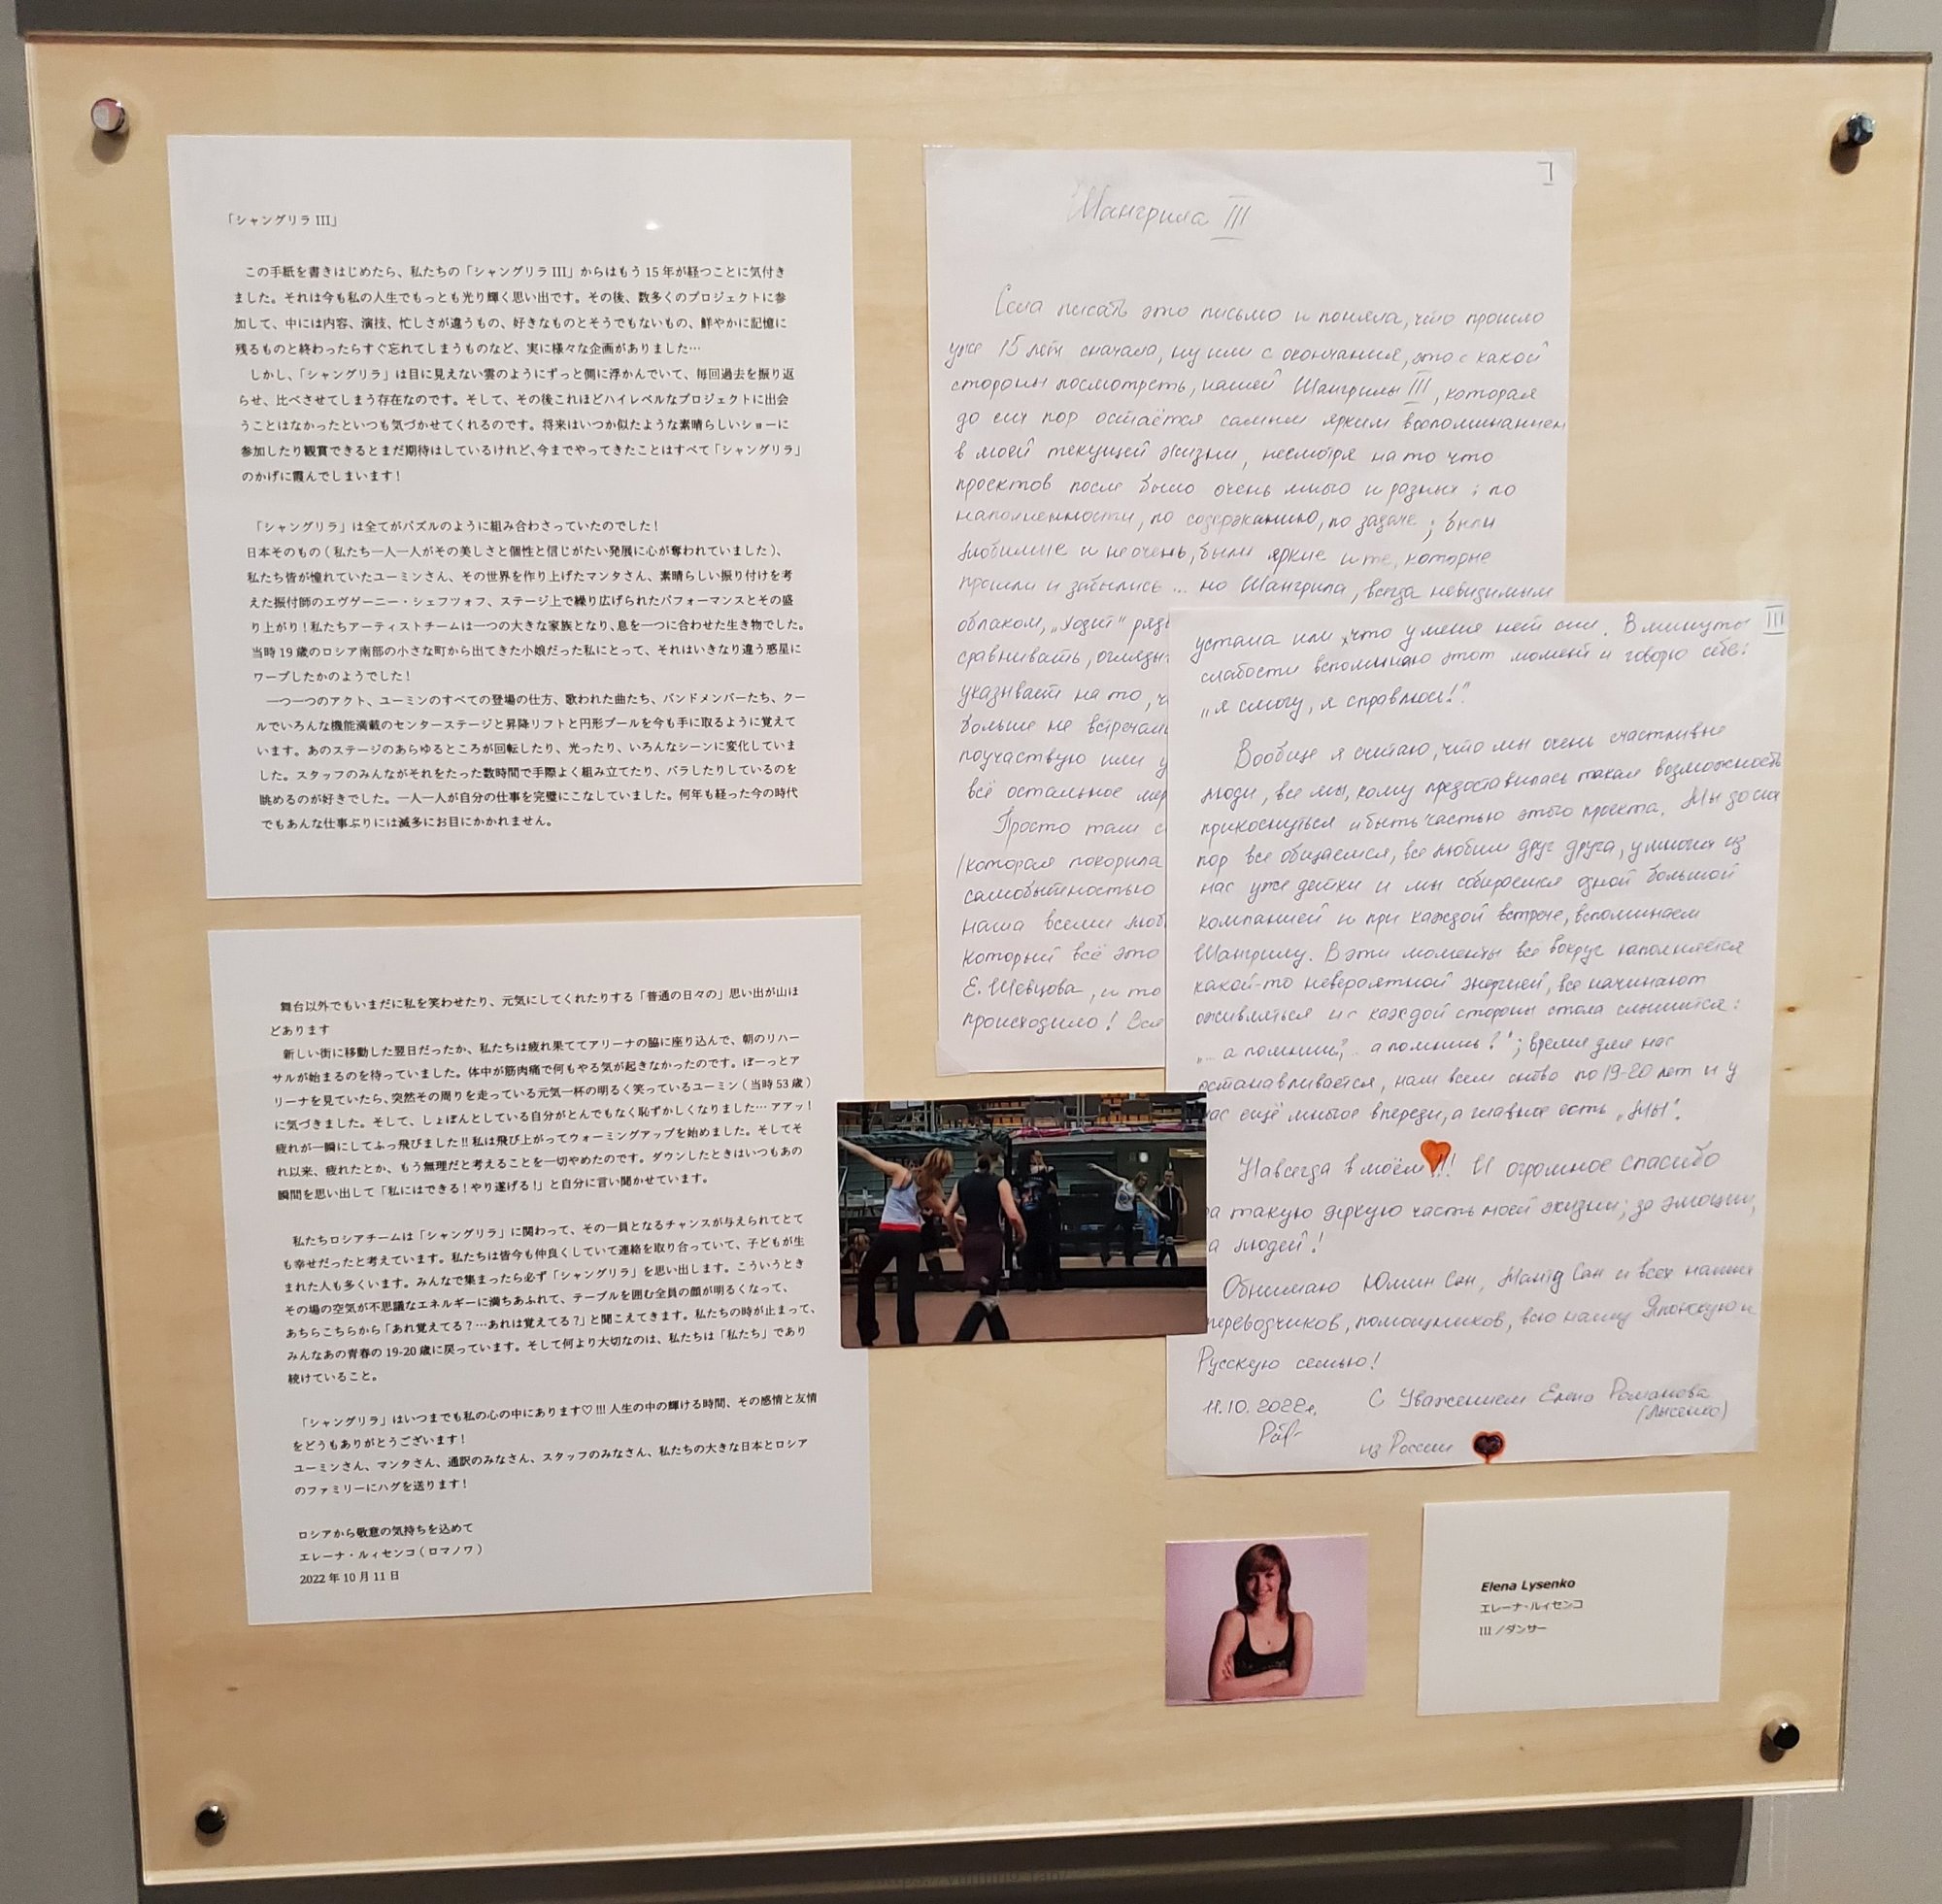 「シャングリラ III」
この手紙を書きはじめたら、私たちの「シャングリラ III」からはもう 15 年が経つことに気付き
ました。それは今も私の人生でもっとも光り輝く思い出です。その後、数多くのプロジェクトに参
加して、中には内容、演技、忙しさが違うもの、好きなものとそうでもないもの、鮮やかに記憶に
残るものと終わったらすぐ忘れてしまうものなど、実に様々な企画がありました…
しかし、「シャングリラ」は目に見えない雲のようにずっと側に浮かんでいて、毎回過去を振り返
らせ、比べさせてしまう存在なのです。そして、その後これほどハイレベルなプロジェクトに出会
うことはなかったといつも気づかせてくれるのです。将来はいつか似たような素晴らしいショーに
参加したり観賞できるとまだ期待はしているけれど、今までやってきたことはすべて「シャングリラ」
のかげに霞んでしまいます！
「シャングリラ」は全てがパズルのように組み合わさっていたのでした！
日本そのもの（私たち一人一人がその美しさと個性と信じがたい発展に心が奪われていました）、
私たち皆が憧れていたユーミンさん、その世界を作り上げたマンタさん、素晴らしい振り付けを考
えた振付師のエヴゲーニー・シェフツォフ、ステージ上で繰り広げられたパフォーマンスとその盛
り上がり！私たちアーティストチームは一つの大きな家族となり、息を一つに合わせた生き物でした。
当時 19 歳のロシア南部の小さな町から出てきた小娘だった私にとって、それはいきなり違う惑星に
ワープしたかのようでした！
一つ一つのアクト、ユーミンのすべての登場の仕方、歌われた曲たち、バンドメンバーたち、クー
ルでいろんな機能満載のセンターステージと昇降リフトと円形プールを今も手に取るように覚えて
います。あのステージのあらゆるところが回転したり、光ったり、いろんなシーンに変化していま
した。スタッフのみんながそれをたった数時間で手際よく組み立てたり、バラしたりしているのを
眺めるのが好きでした。一人一人が自分の仕事を完璧にこなしていました。何年も経った今の時代
でもあんな仕事ぶりには滅多にお目にかかれません。
舞台以外でもいまだに私を笑わせたり、元気にしてくれたりする「普通の日々の」思い出が山ほ
どあります
新しい街に移動した翌日だったか、私たちは疲れ果ててアリーナの脇に座り込んで、朝のリハー
サルが始まるのを待っていました。体中が筋肉痛で何もやる気が起きなかったのです。ぼーっとア
リーナを見ていたら、突然その周りを走っている元気一杯の明るく笑っているユーミン（当時 53 歳）
に気づきました。そして、しょぼんとしている自分がとんでもなく恥ずかしくなりました… アアッ！
疲れが一瞬にしてふっ飛びました!! 私は飛び上がってウォーミングアップを始めました。そしてそ
れ以来、疲れたとか、もう無理だと考えることを一切やめたのです。ダウンしたときはいつもあの
瞬間を思い出して「私にはできる！やり遂げる！」と自分に言い聞かせています。
私たちロシアチームは「シャングリラ」に関わって、その一員となるチャンスが与えられてとて
も幸せだったと考えています。私たちは皆今も仲良くしていて連絡を取り合っていて、子どもが生
まれた人も多くいます。みんなで集まったら必ず「シャングリラ」を思い出します。こういうとき
その場の空気が不思議なエネルギーに満ちあふれて、テーブルを囲む全員の顔が明るくなって、
あちらこちらから「あれ覚えてる？…あれは覚えてる？」と聞こえてきます。私たちの時が止まって、
みんなあの青春の 19-20 歳に戻っています。そして何より大切なのは、私たちは「私たち」であり
続けていること。
「シャングリラ」はいつまでも私の心の中にあります♡!!! 人生の中の輝ける時間、その感情と友情
をどうもありがとうございます！
ユーミンさん、マンタさん、通訳のみなさん、スタッフのみなさん、私たちの大きな日本とロシア
のファミリーにハグを送ります！
ロシアから敬意の気持ちを込めて
エレーナ・ルィセンコ（ロマノワ）
2022 年 10 月 11 日
I
Шангрила III
Села писать это письмо и поняла, что прошло
уже 15 лет сначала, ну или с окончания, это с какой
стороны посмотреть, нашей Шангрилы III, которая
до сих пор остаётся самым ярким воспоминанием
в моей текущей жизни, несмотря на то что
проектов после было очень много и разных: по
наполненности, по содержанию, по задаче; были
любимые и не очень, были яркие и те, которые
прошли и забылись ... но Шангрила, всегда невидимым
облаком, „ходит“ ряд
сравнивать, огляды
указывает на то, ч
больше не встреча
поучаствую или у
всё остальное мер
Просто там с
(которая покорила
самобытностью
наша всеми люб
который всё это
Е. Шевцова, и то
происходило! Вся
III
устала или, что у меня нет сил. В минуты
слабости вспоминаю этот момент и говорю себе:
„я смогу, я справлюсь!“
Вообще я считаю, что мы очень счастливые
люди, все мы, кому предоставилась такая возможность
прикоснуться и быть частью этого проекта. Мы до сих
пор все общаемся, все любим друг друга, у многих из
нас уже детки и мы собираемся одной большой
компанией и при каждой встрече, вспоминаем
Шангрилу. В эти моменты всё вокруг наполняется
какой-то невероятной энергией, все начинают
оживляться и с каждой стороны стола слышится:
„... а помнишь?, .. а помнишь?“; время для нас
останавливается, нам всем снова по 19-20 лет и у
нас ещё многое впереди, а главное есть „МЫ“.
Навсегда в моём !!! И огромное спасибо
а такую яркую часть моей жизни; за эмоции,
а людей!
Обнимаю Юмин Сан, Манта Сан и всех наших
переводчиков, помощников, всю нашу Японскую и
Русскую семью!
11.10.2022г.
С Уважением Елена Романова
(Лысенко)
из России
Elena Lysenko
エレーナ・ルィセンコ
III／ダンサー